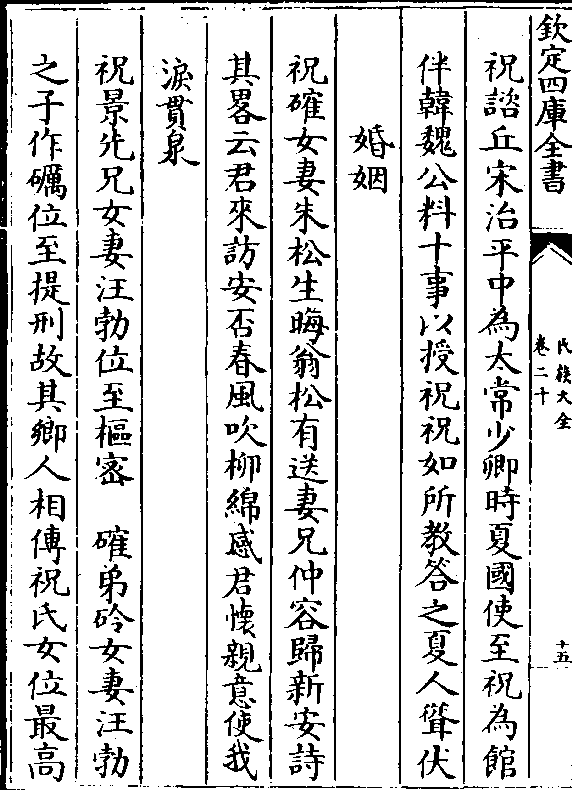 欽定四庫全書
氏族大全
卷二十
十五
祝諮丘宋治平中為太常少卿時夏國使至祝為館
伴韓魏公料十事以授祝祝如所教答之夏人聳伏
婚姻
祝確女妻朱松生晦翁松有送妻兄仲容歸新安詩
其畧云君來訪安否春風吹柳綿感君懷親意使我
淚貫泉
祝景先兄女妻汪勃位至樞密　確弟矜女妻汪勃
之子作礪位至提刑故其鄉人相傳祝氏女位最高